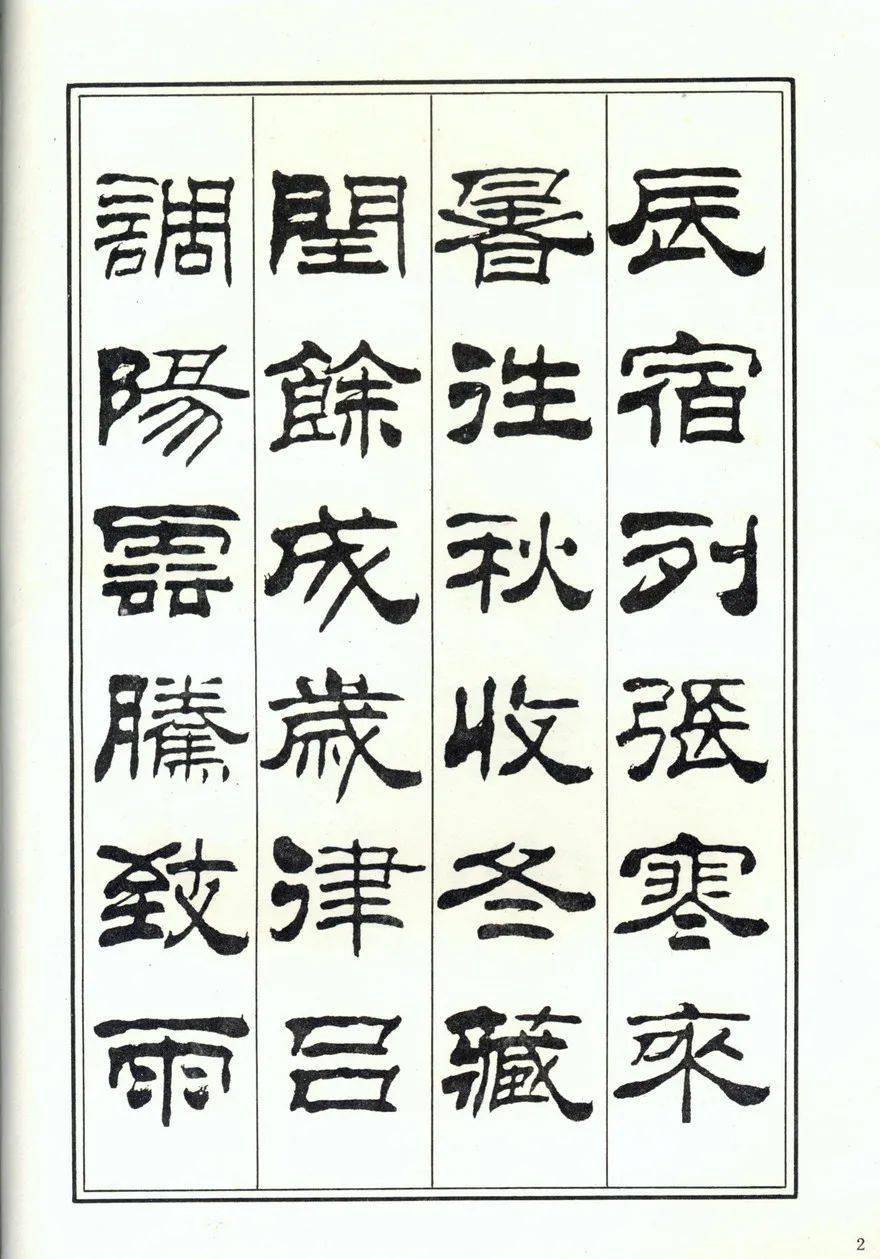 辰宿列張寒來
暑往秋收冬藏
閏餘成歲律呂
調陽雲騰致雨
2